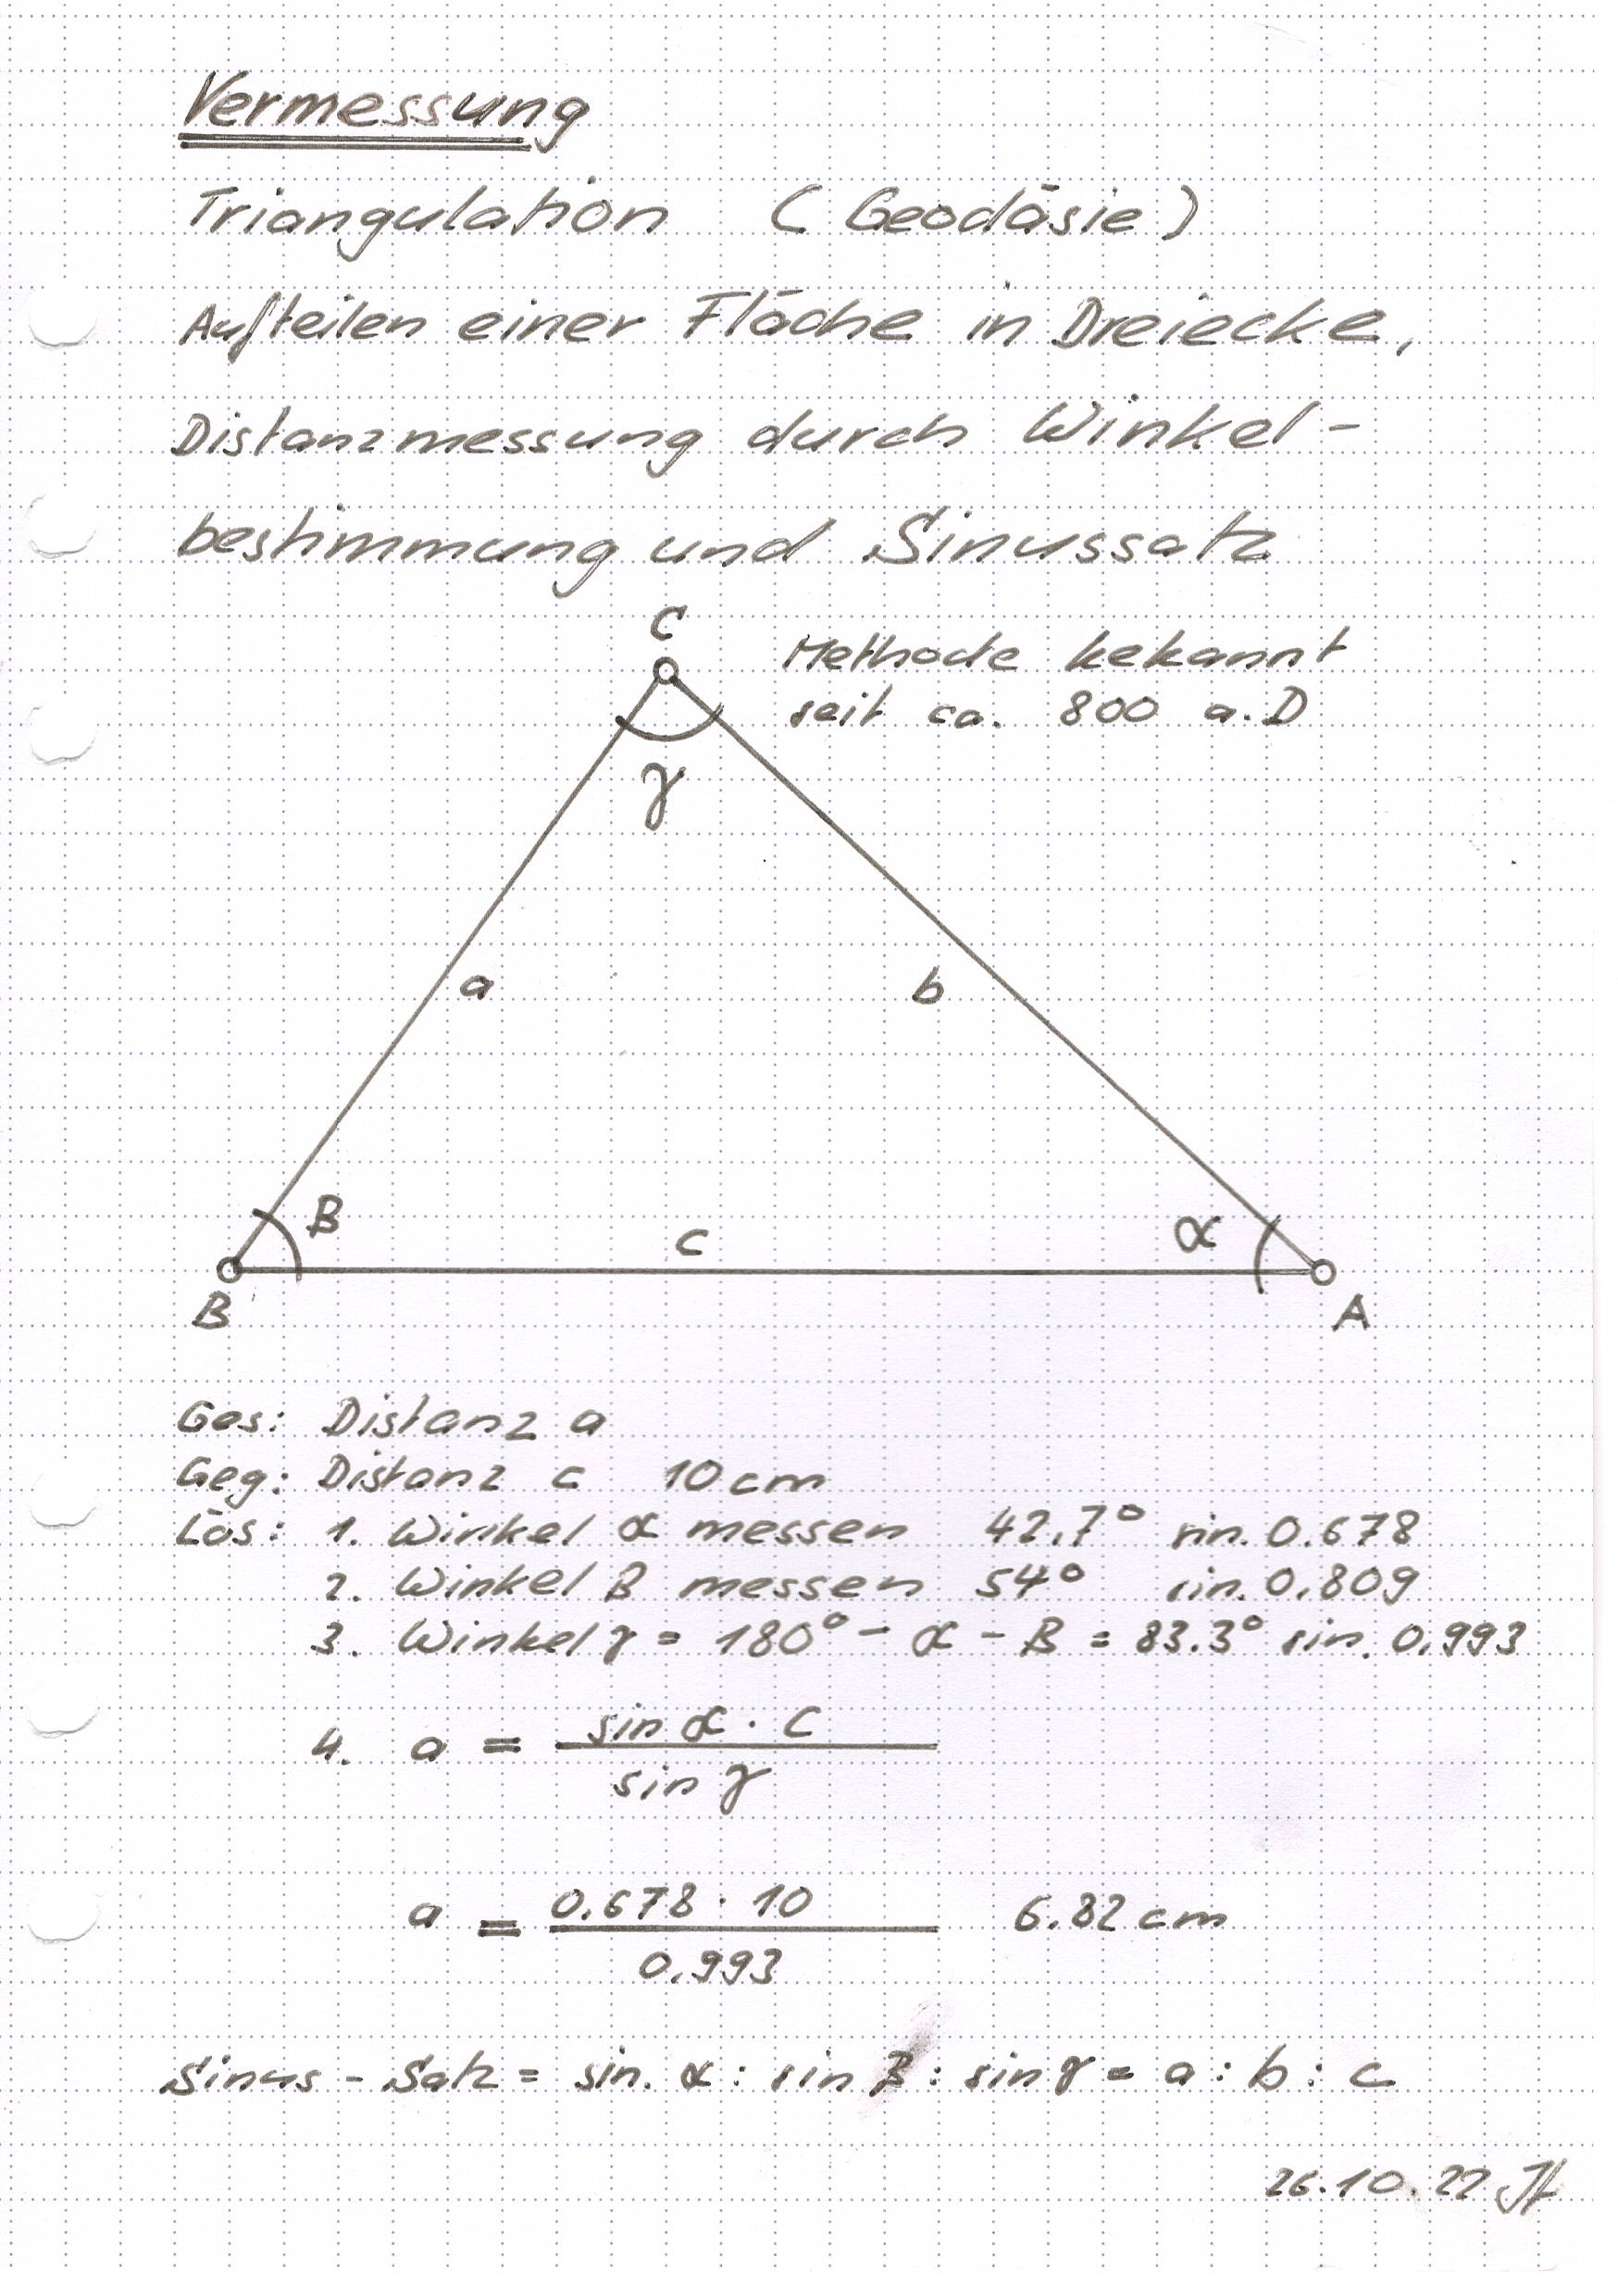 Vermessung
Triangulation (Geodäsie)
Aufteilen einer Fläche in Dreiecke,
Distanzmessung durch Winkel-
bestimmung und Sinussatz
C
Methode bekannt
seit ca. 800 a.D
γ
a
b
β
c
α
B
A
Ges: Distanz a
Geg: Distanz c 10 cm
Lös: 1. Winkel α messen 42.7° sin. 0.678
2. Winkel β messen 54° sin. 0.809
3. Winkel γ = 180° - α - β = 83.3° sin. 0.993
4. a = sin α · c
sin γ
a = 0.678 · 10 6.82 cm
0.993
Sinus-Satz = sin. α : sin β : sin γ = a : b : c
26.10.22